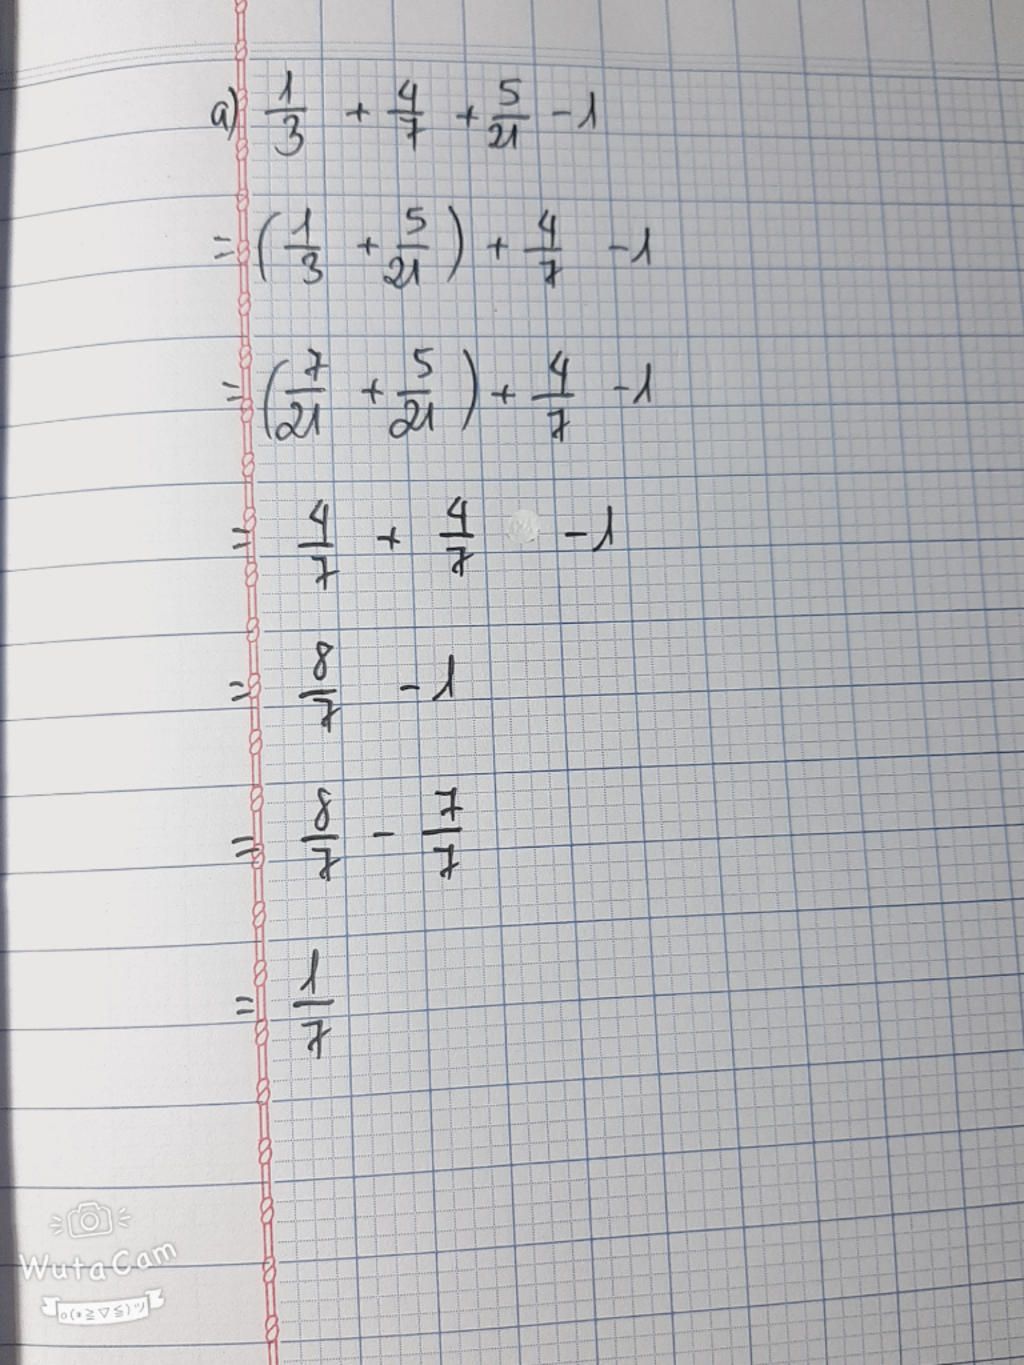 a) 1/3 + 4/7 + 5/21 - 1
= (1/3 + 5/21) + 4/7 - 1
= (7/21 + 5/21) + 4/7 - 1
= 4/7 + 4/7 - 1
= 8/7 - 1
= 8/7 - 7/7
= 1/7
WutaCam
o(*≧▽≦)ツ